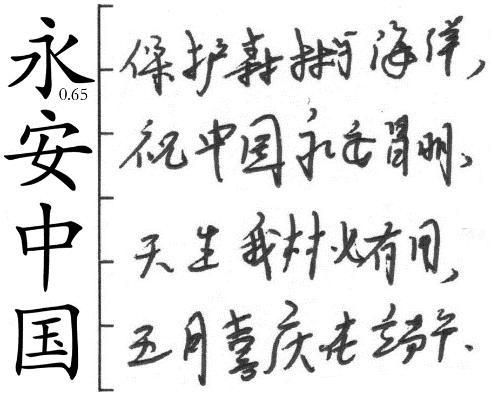 永安中国
0.65
保护森林与海洋,
祝中国永安昌明、
天生我材必有用,
五月喜庆在端午.